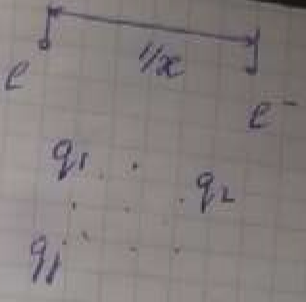 1/x
e e⁻
q₁ q₂
q₁